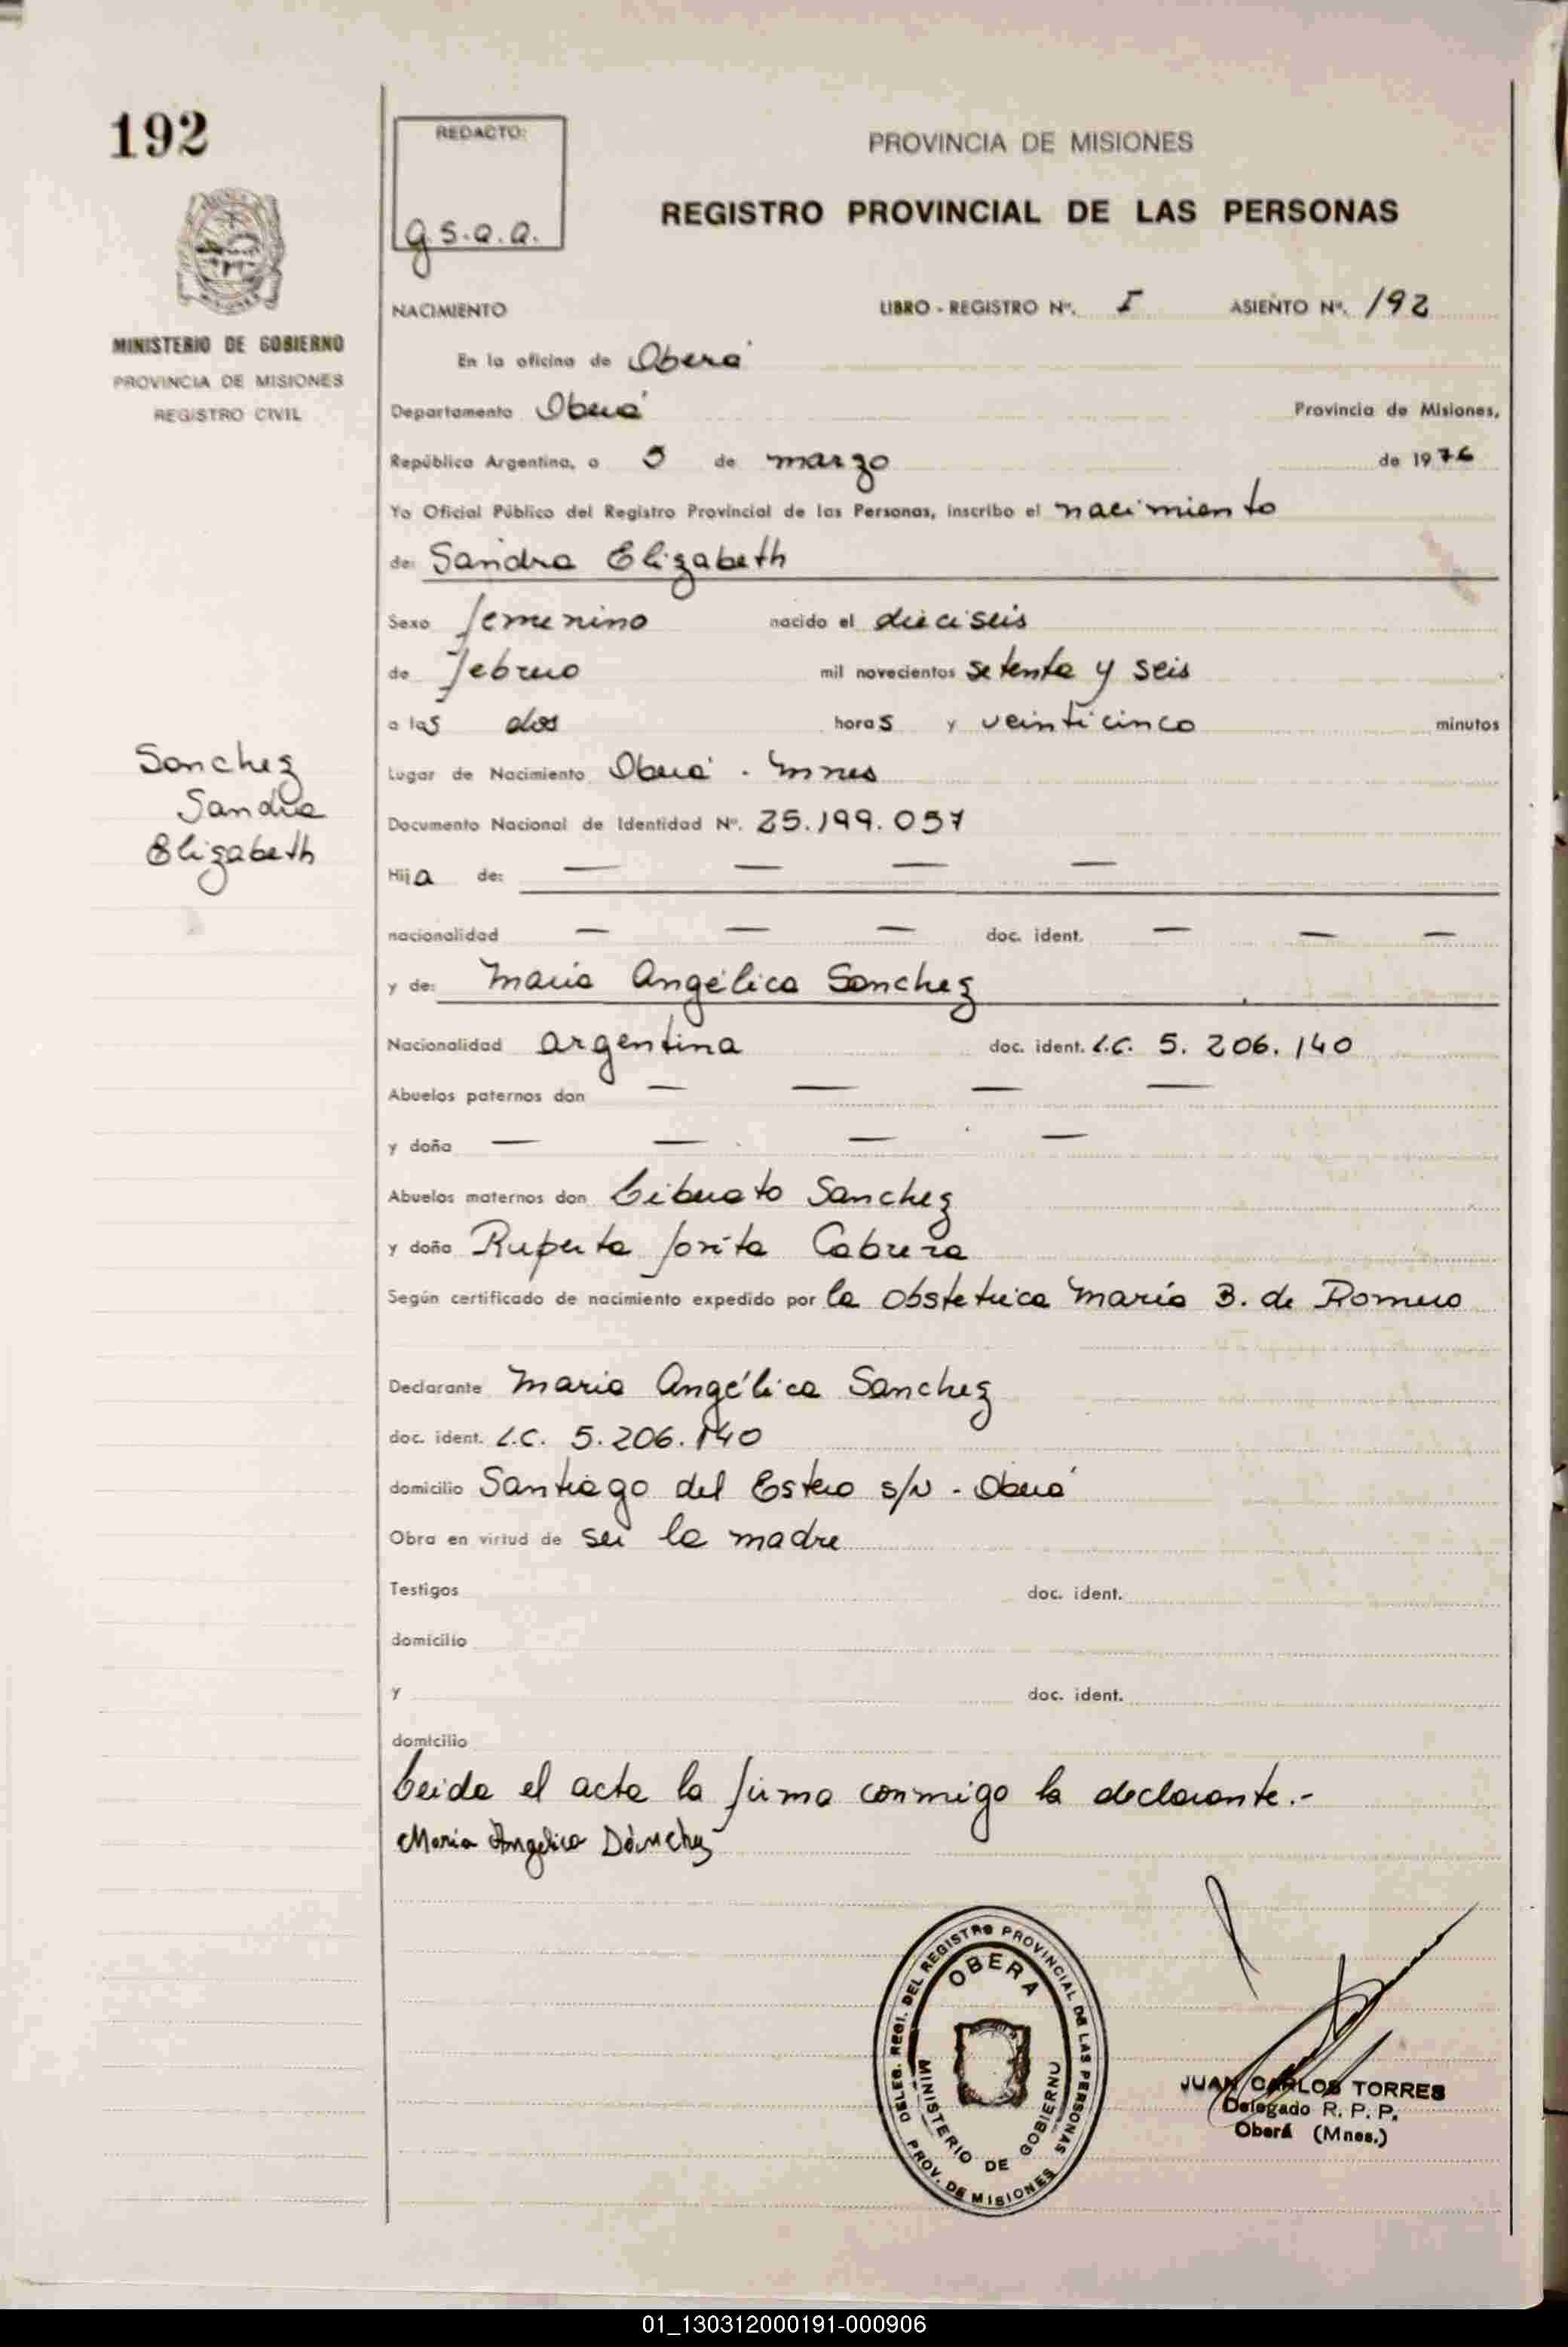 192
REDACTO:
g.s.a.a.
PROVINCIA DE MISIONES
REGISTRO PROVINCIAL DE LAS PERSONAS
MINISTERIO DE GOBIERNO
PROVINCIA DE MISIONES
REGISTRO CIVIL
NACIMIENTO LIBRO - REGISTRO Nº. I ASIENTO Nº. 192
En la oficina de Oberá
Departamento Oberá Provincia de Misiones,
República Argentina, a 5 de marzo de 1976
Yo Oficial Público del Registro Provincial de las Personas, inscribo el nacimiento
de: Sandra Elizabeth
Sexo femenino nacido el dieciseis
de febrero mil novecientos setenta y seis
a las dos horas y veinticinco minutos
Lugar de Nacimiento Oberá - Mnes
Documento Nacional de Identidad Nº. 25.199.057
Sanchez
Sandra
Elizabeth
Hija de: — — — —
nacionalidad — — — doc. ident. — — —
y de: Maria Angélica Sanchez
Nacionalidad argentina doc. ident. L.C. 5.206.140
Abuelos paternos don — — — —
y doña — — — —
Abuelos maternos don Liberato Sanchez
y doña Ruperta Cabrera
Según certificado de nacimiento expedido por la obstetrica Maria B. de Romero
Declarante Maria Angélica Sanchez
doc. ident. L.C. 5.206.140
domicilio Santiago del Estero s/N - Oberá
Obra en virtud de ser la madre
Testigos doc. ident.
domicilio
y doc. ident.
domicilio
Leida el acta la firma conmigo la declarante.-
Maria Angelica Sánchez
DELEG. REGI. DEL REGISTRO PROVINCIAL DE LAS PERSONAS
OBERA
MINISTERIO DE GOBIERNO
PROV. DE MISIONES
JUAN CARLOS TORRES
Delegado R. P. P.
Oberá (Mnes.)
01_130312000191-000906